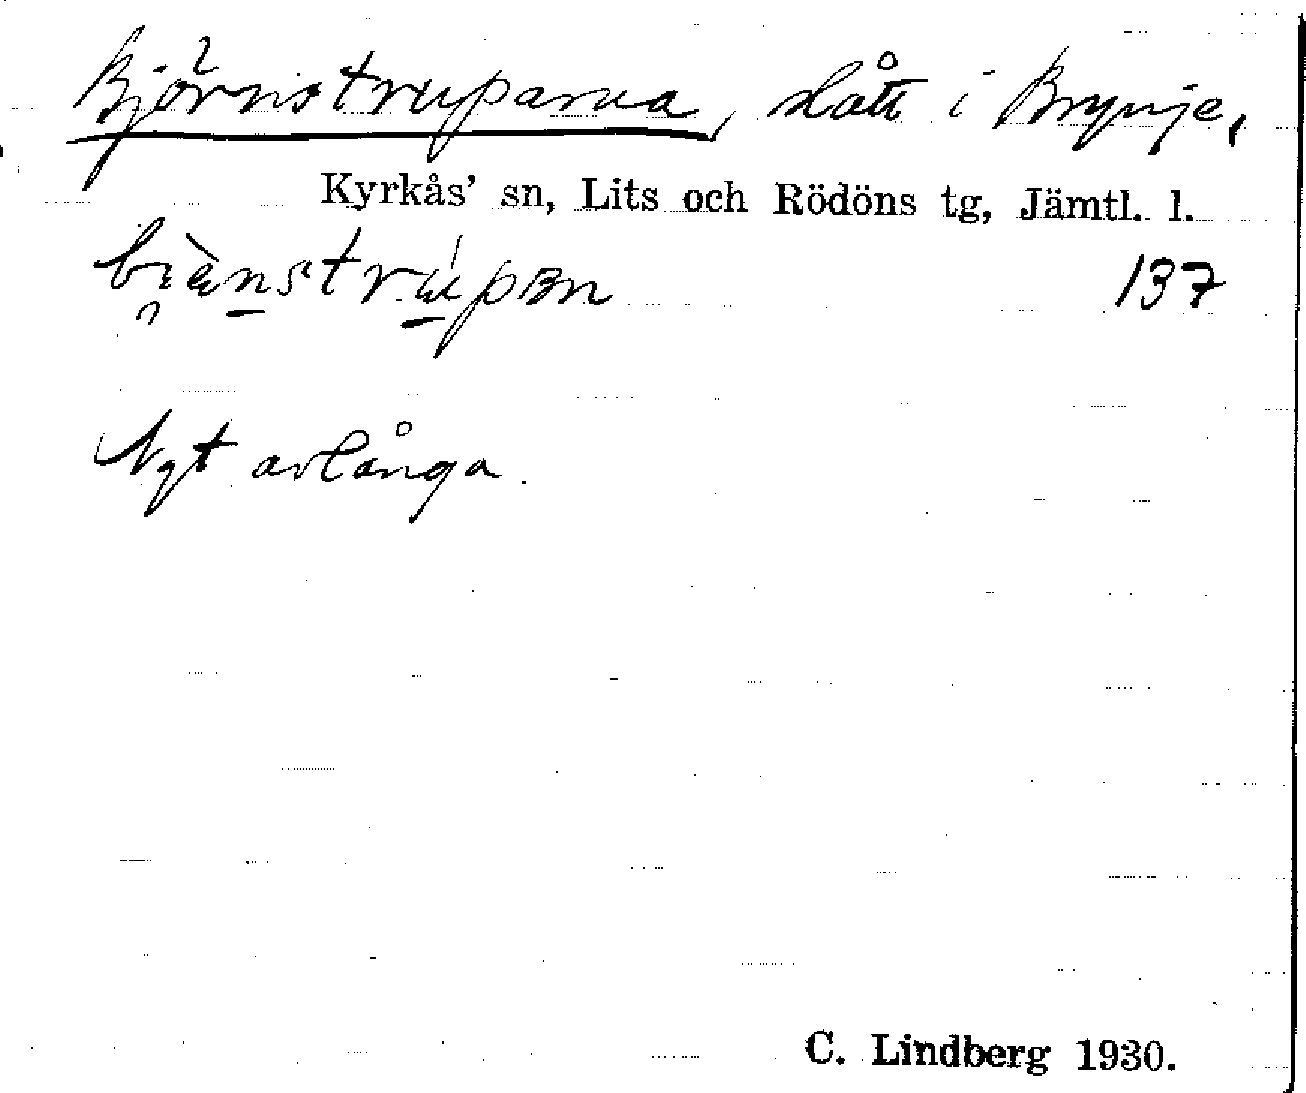 Björnstruparna, slått i Brynje,
Kyrkås' sn, Lits och Rödöns tg, Jämtl. l.
137
Ngt avlånga.
C. Lindberg 1930.